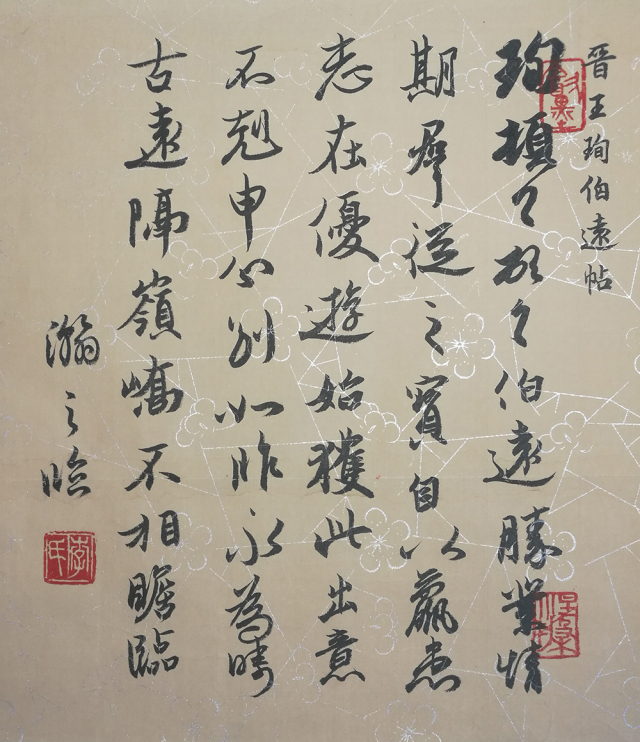 晉王珣伯遠帖
珣頓首頓首伯遠勝業情
期群從之寶自以羸患
志在優遊始獲此出意
不剋申分別如昨永為疇
古遠隔嶺嶠不相瞻臨
瀚之臨